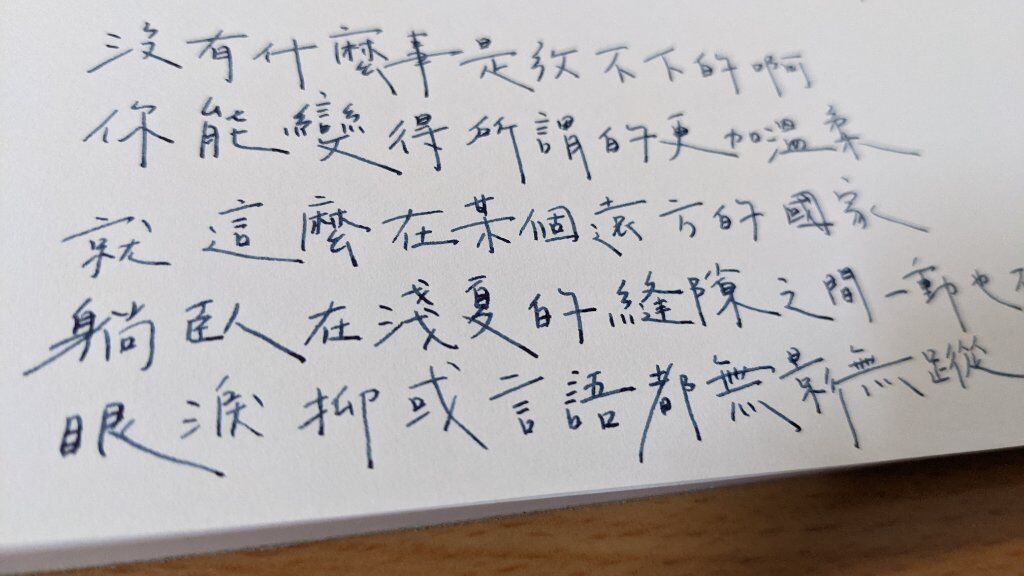 沒有什麼事是放不下的啊
你能變得所謂的更加溫柔
就這麼在某個遠方的國家
躺臥在淺夏的縫隙之間一動也不
眼淚抑或言語都無影無蹤